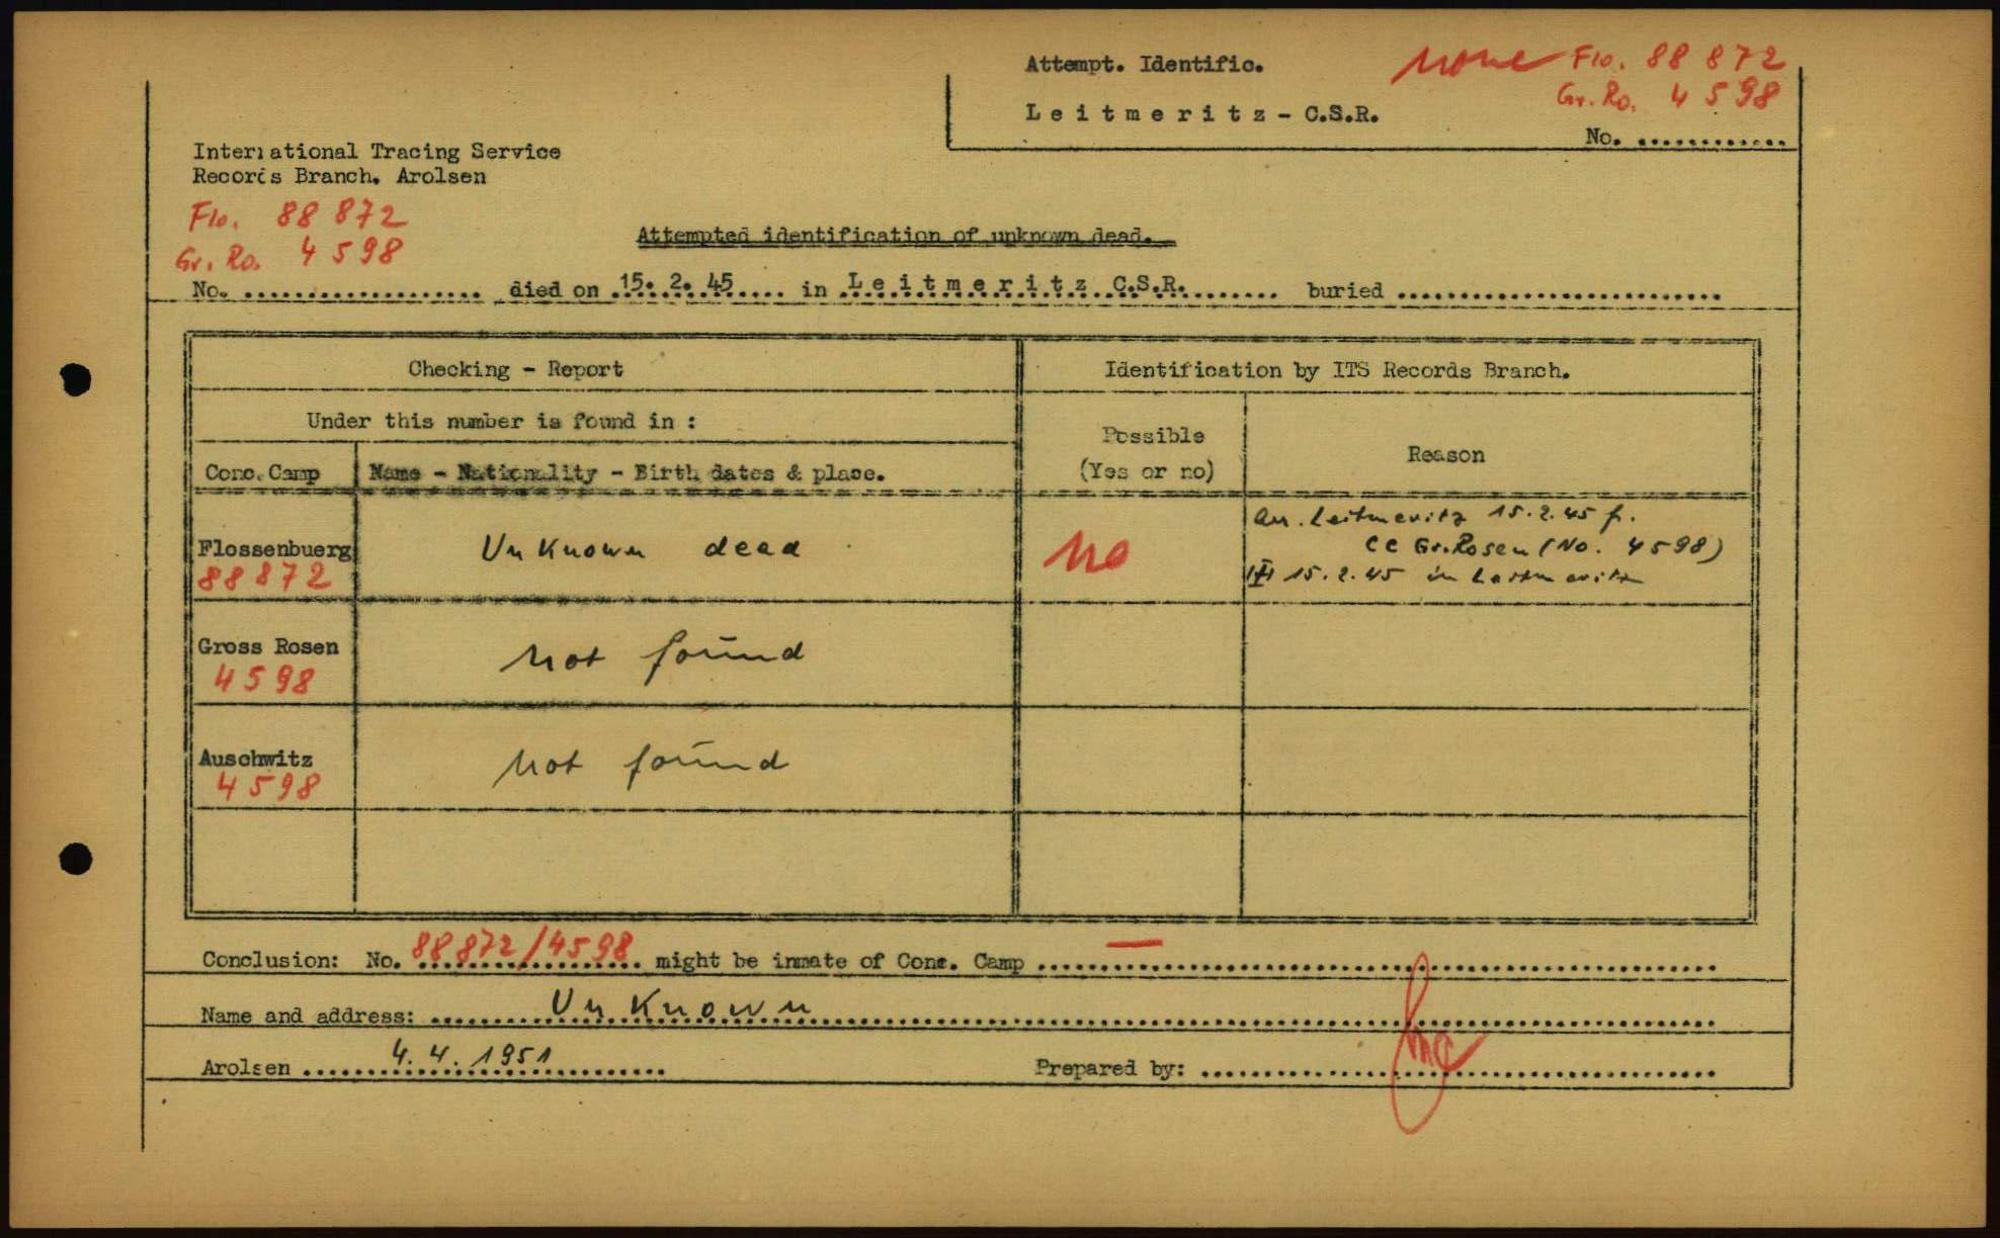 Attempt. Identific. none Flo. 88 872
Leitmeritz - C.S.R. Gr. Ro. 4598
No. ............
International Tracing Service
Records Branch, Arolsen
Flo. 88 872
Gr. Ro. 4598
Attempted identification of unknown dead.
No. ................... died on 15. 2. 45 in Leitmeritz C.S.R. buried ..........................
Checking - Report
Identification by ITS Records Branch.
Under this number is found in :
Possible
(Yes or no)
Reason
Conc. Camp
Name - Nationality - Birth dates & place.
Flossenbuerg
88872
Unknown dead
no
arr. Leitmeritz 15.2.45 f.
CC Gr. Rosen (No. 4598)
15.2.45 in Leitmeritz
Gross Rosen
4598
not found
Auschwitz
4598
not found
Conclusion: No. 88872/4598 might be inmate of Conc. Camp —
Name and address: Unknown
Arolsen 4.4.1951 Prepared by: